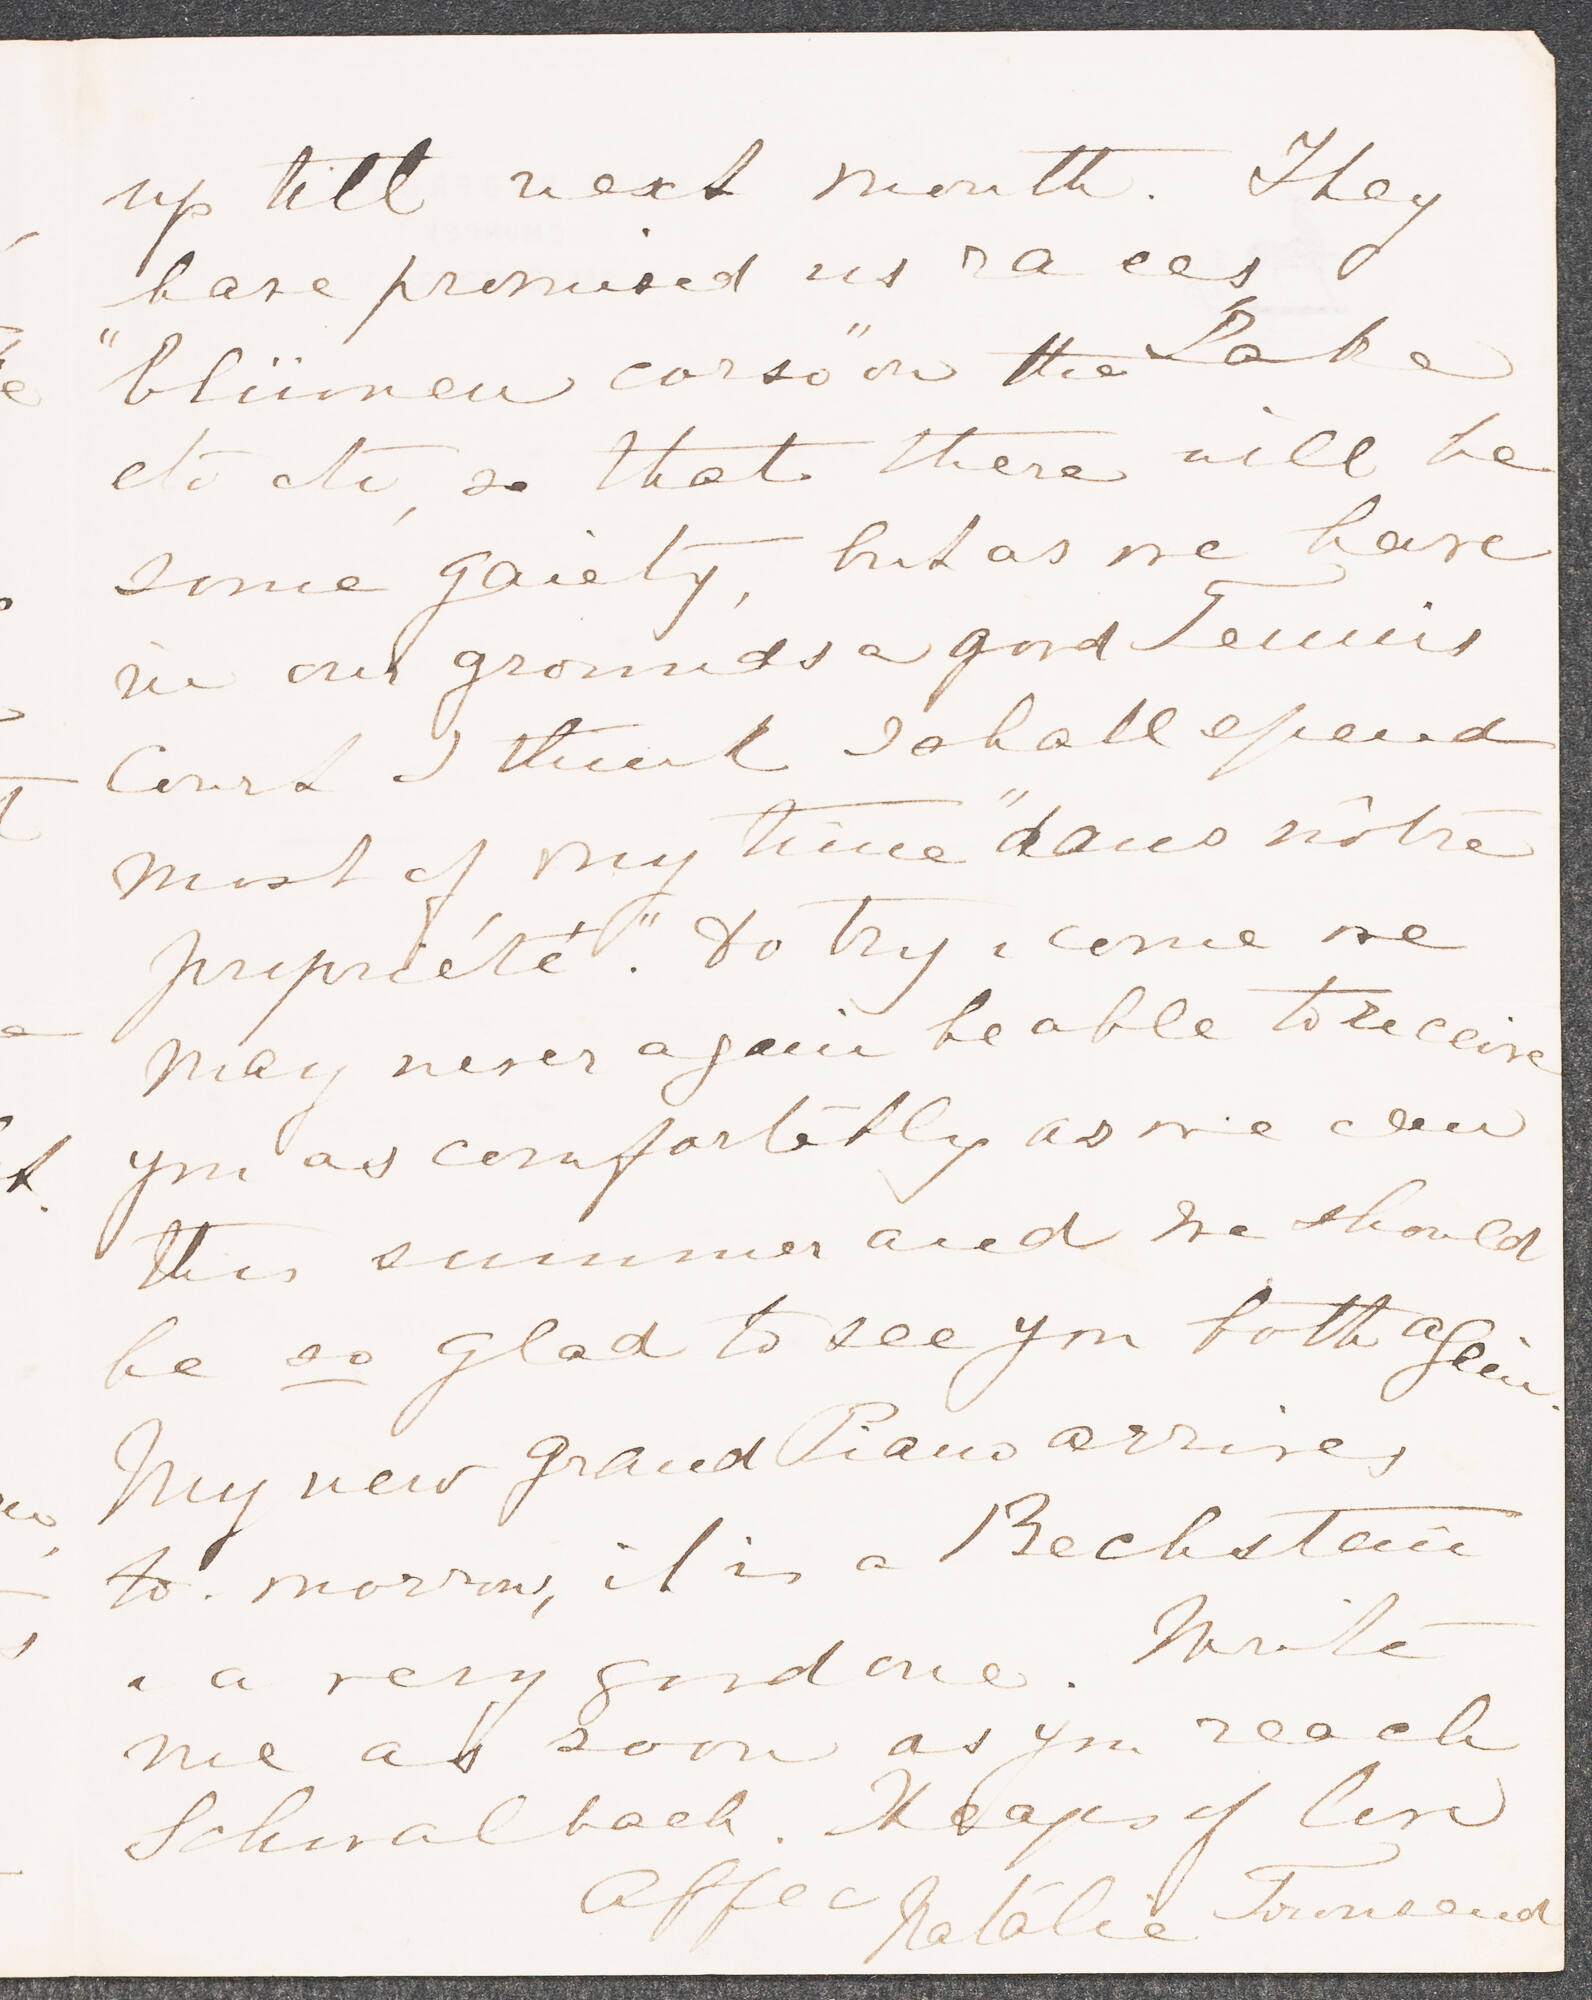 up till next month. They
have promised us races
"blümen corso" on the Lake
etc etc, so that there will be
some gaiety, but as we have
in our grounds a good Tennis
Court I think I shall spend
most of my time "dans nôtre
propriété". Do try & come we
may never again be able to receive
you as comfortably as we can
this summer and we should
be so glad to see you both again.
My new grand Piano arrives
to-morrow, it is a Bechstein
& a very good one. Write
me as soon as you reach
Schwalbach. Heaps of love
Affec Natalie Townsend